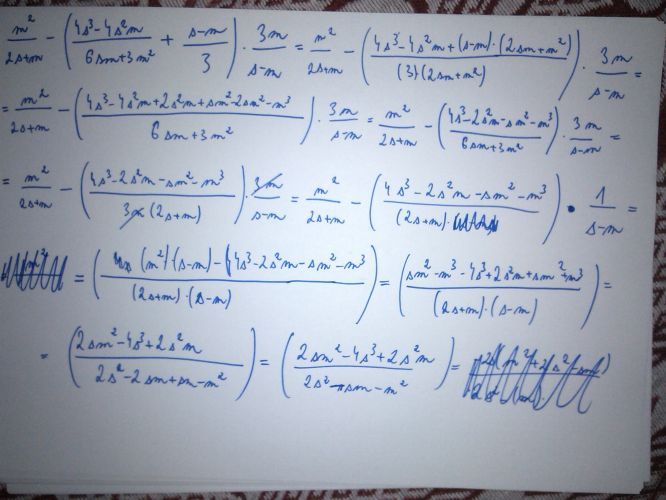 m²/(2s+m) - ((4s³-4s²m)/(6sm+3m²) + (s-m)/3) · 3m/(s-m) = m²/(2s+m) - ((4s³-4s²m+(s-m)·(2sm+m²))/((3)(2sm+m²))) · 3m/(s-m) =
= m²/(2s+m) - ((4s³-4s²m+2s²m+sm²-2sm²-m³)/(6sm+3m²)) · 3m/(s-m) = m²/(2s+m) - ((4s³-2s²m-sm²-m³)/(6sm+3m²)) · 3m/(s-m) =
= m²/(2s+m) - ((4s³-2s²m-sm²-m³)/(3m(2s+m))) · 3m/(s-m) = m²/(2s+m) - ((4s³-2s²m-sm²-m³)/(2s+m)) · 1/(s-m) =
= ((m²)(s-m)-(4s³-2s²m-sm²-m³))/((2s+m)·(s-m)) = ((sm²-m³-4s³+2s²m+sm²+m³)/((2s+m)·(s-m))) =
= ((2sm²-4s³+2s²m)/(2s²-2sm+sm-m²)) = ((2sm²-4s³+2s²m)/(2s²-sm-m²)) =